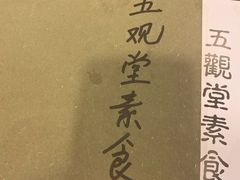 五观堂素食
五觀堂素食